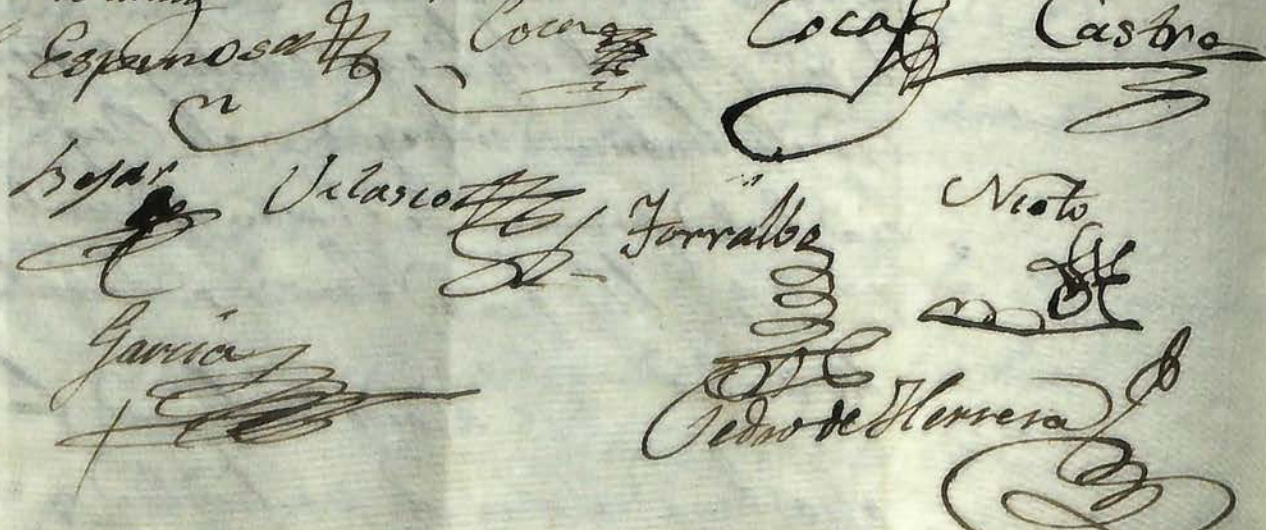 Espinosa Coca Castro
Velasco Torralbo Nieto
Garcia
Pedro de Herrera